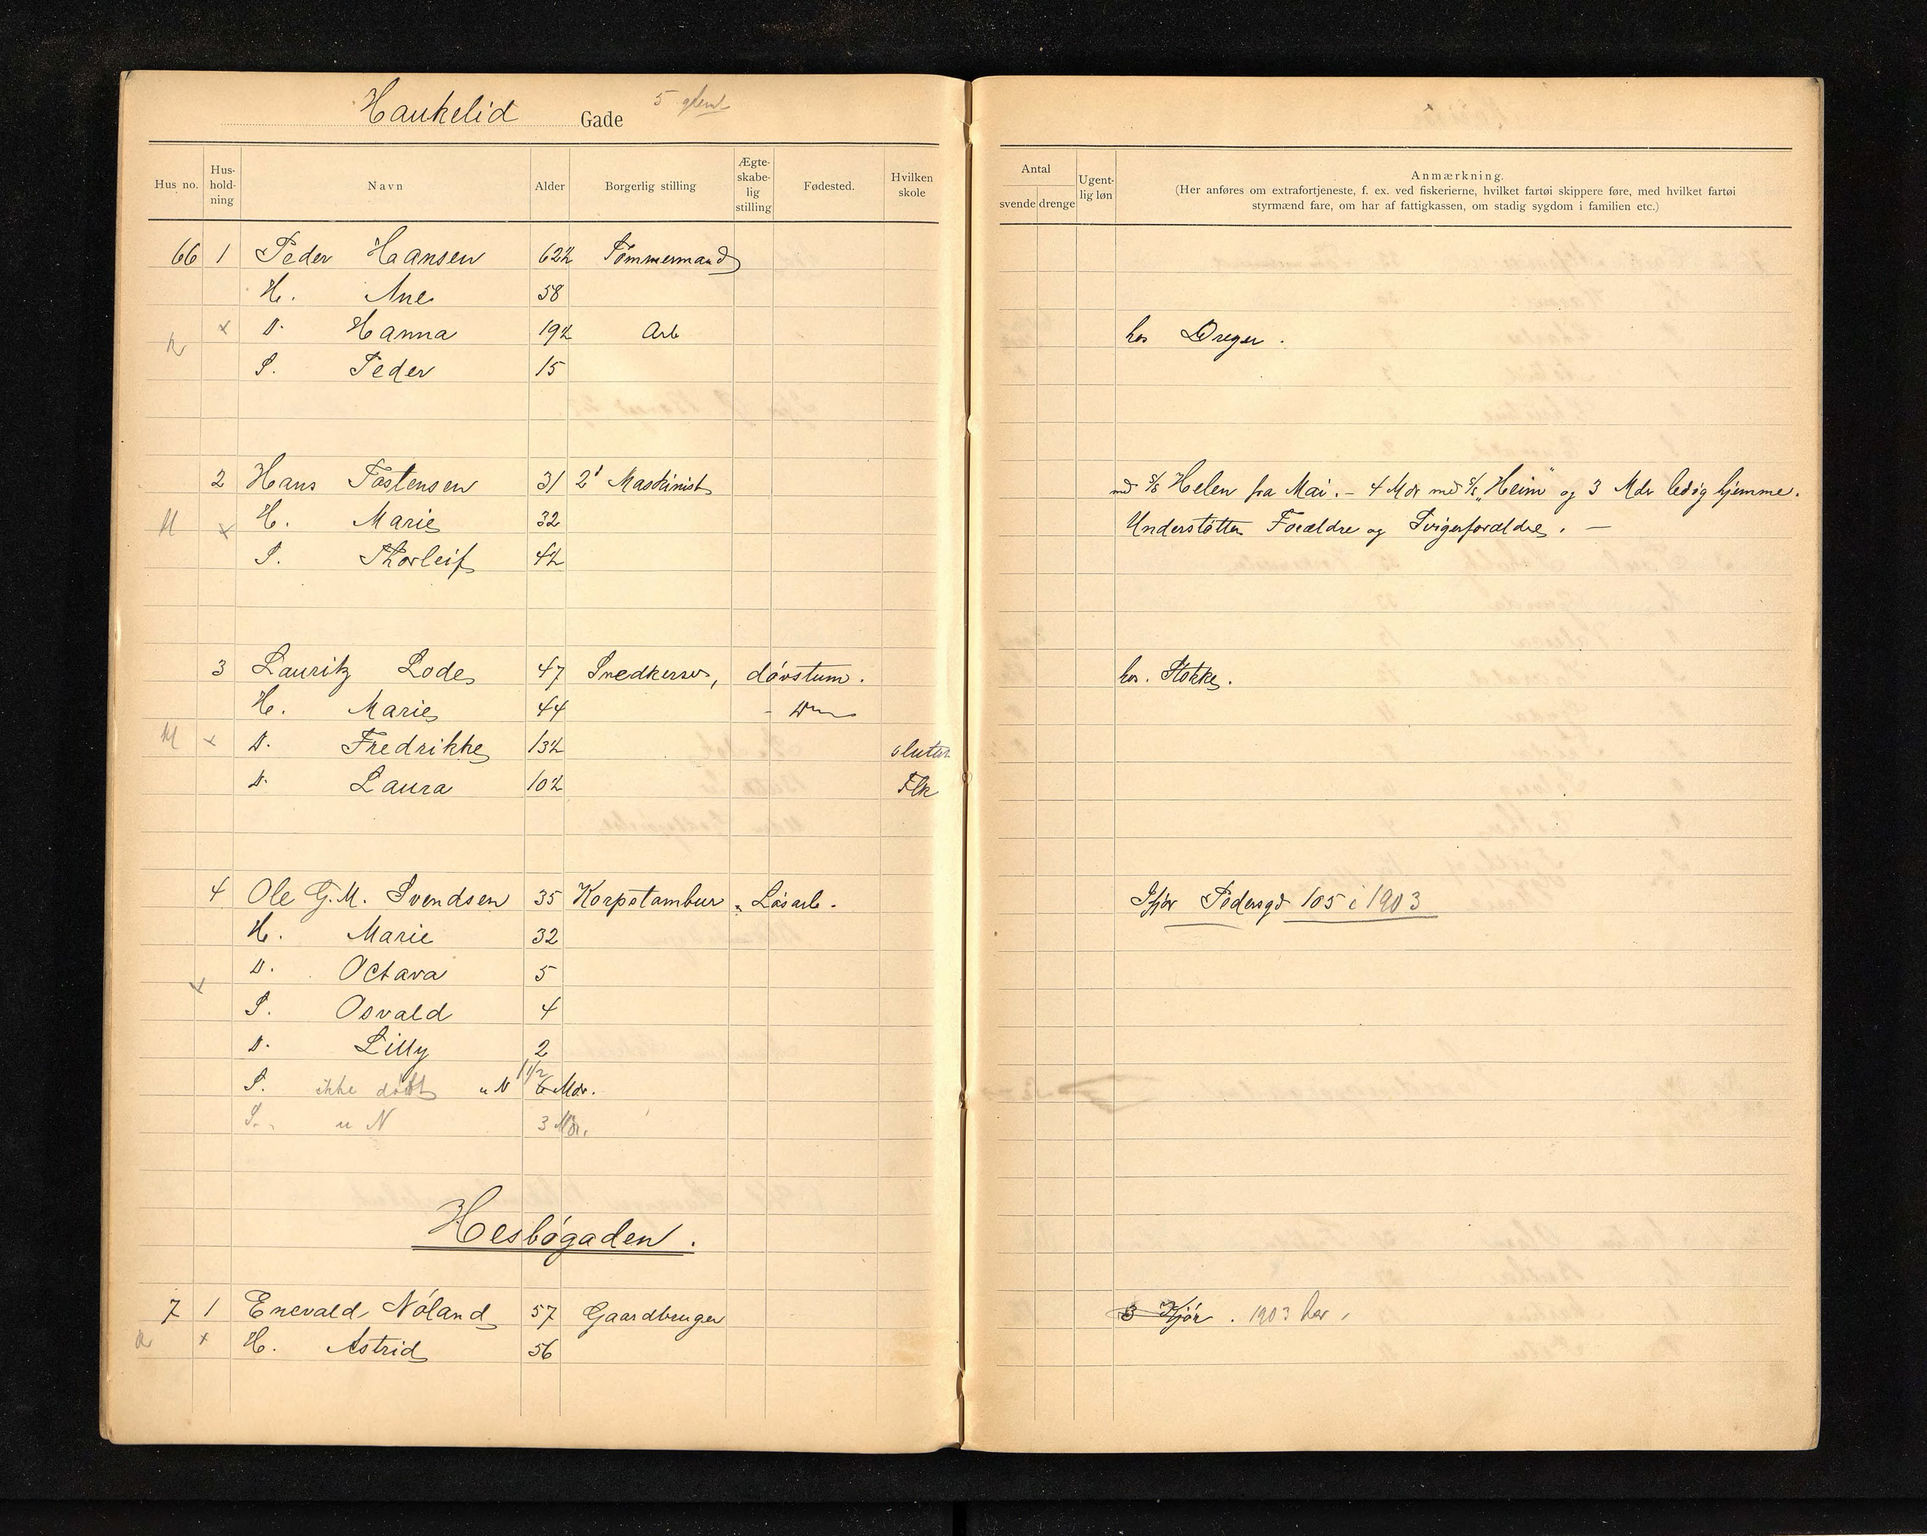 Haukelid Gade
Hus no. Hus-hold-ning Navn Alder Borgerlig stilling Ægte-skabe-lig stilling Fødested. Hvilken skole
Antal svende drenge Ugent-lig løn Anmærkning.
(Her anføres om extrafortjeneste, f. ex. ved fiskerierne, hvilket fartøi skippere føre, med hvilket fartøi
styrmænd fare, om har af fattigkassen, om stadig sygdom i familien etc.)
66 1 Peder Hansen 62½ Tømmermand
H. Ane 58
x D. Hanna 19½ Arb hos Dreyer.
S. Peder 15
2 Hans Tostensen 31 2' Maskinist md S/S Helen fra Mai. - 4 Mdr md S/S "Heim" og 3 Mdr ledig hjemme.
M x H. Marie 32 Understøtter Forældre og Svigerforældre. —
S. Thorleif 4½
3 Lauritz Lode 47 Snedkersv, døvstum. hos. Stokke.
H. Marie 44 - D
M x D. Fredrikke 13½ sluttet
D. Laura 10½ Flk
4 Ole G. M. Svendsen 35 Korpstambur Løsarb. Ifjor Pedersgd 105 i 1903
H. Marie 32
D. Octava 5
x S. Osvald 4
D. Lilly 2
S. ikke døbt u N 1 1/2 6 Mdr.
S. u N 3 Mdr.
Hesbøgaden.
7 1 Enevald Nøland 57 Gaardbruger 3 Ifjør. 1903 her.
x H. Astrid 56